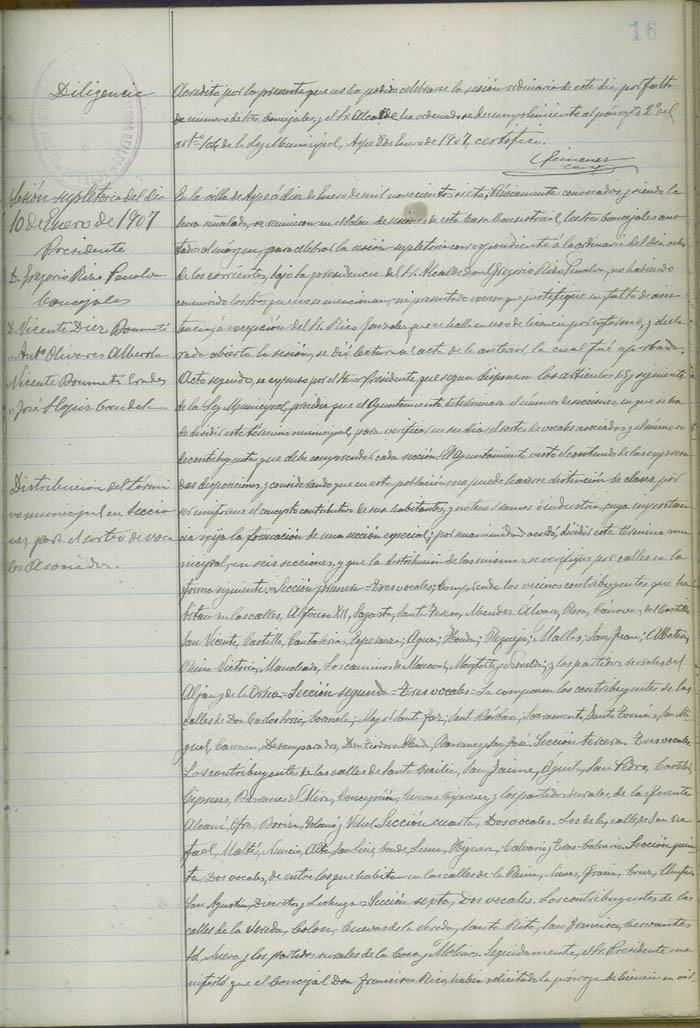 16
Diligencia
Acredito por la presente que no ha podido celebrarse la sesión ordinaria de este dia, por falta
de número de Sres. Concejales, y el Sr. Alcalde ha ordenado se de cumplimiento al párrafo 2º del
artº 104 de la Ley Municipal, Aspe 8 de Enero de 1907, certifico.
Gimenez
Sesión supletoria del dia
10 de Enero de 1907
Presidente
D. Gregorio Rizo Penalva
Concejales
D. Vicente Diez Boumati
" Antº Olivares Alberola
" Vicente Boumati
" José Candela
Distribucion del térmi
no municipal en Seccio
nes, para el sorteo de voca
les Asociados.
En la villa de Aspe á diez de Enero de mil novecientos siete; Previamente convocados, y siendo la
hora señalada, se reunieron en el Salon de sesiones de esta Casa Consistorial, los Sres. Concejales ano
tados al márgen, para celebrar la sesión supletoria correspondiente á la ordinaria del dia ocho
de los corrientes, bajo la presidencia del Sr. Alcalde Don Gregorio Rizo Penalva, no habiendo
concurrido los Sres. que no se mencionan, ni presentado excusa que justifique su falta de asis
tencia, á excepción del Sr. Rico Gonzalez que se halla en uso de licencia por enfermo, y decla
rada abierta la sesión, se dió lectura al acta de la anterior, la cual fué aprobada.
Acto seguido, se expuso por el Señor Presidente, que segun disponen los artículos 65 y siguientes
de la Ley Municipal, procedia que el Ayuntamiento determinara el número de secciones en que se ha
de dividir este término municipal, para verificar en su dia el sorteo de vocales asociados, y el número
de contribuyentes que debe comprender cada sección. El Ayuntamiento, visto el contenido de las expresa
das disposiciones, y considerando que en esta población no puede hacerse distinción de clases, por
ser uniforme el concepto contributivo de sus habitantes, y no tener ramos ó industria, cuya importan
cia exija la formación de una sección especial; por unanimidad acordó, dividir este término mu
nicipal, en seis secciones, y que la distribución de las mismas se verifique por calles en la
forma siguiente = Sección primera = Tres vocales; Comprende los vecinos contribuyentes que ha
bitan en las calles, Alfonso XII, Sagasta, Santa Teresa, Mendez Álvaro, Rosa, Cánovas del Castillo,
San Vicente, Castillo, Cantareria, Esperanza, Agua, Honda, Maltés, San Juan,
Reina Victoria, Los caminos de Monforte y Novelda; y los partidos rurales del
Aljau, y de la = Sección segunda = Tres vocales = La componen los contribuyentes de las
calles de Don Carlos Soria, Coronela, Mayor, Santa Faz, Santa Bárbara, Sacramento, Santo Tomás, San Mi
guel, Carmen, Desamparados, Don Isidoro Barranco, San José. Sección tercera. Tres vocales.
Los contribuyentes de las calles de Santa Cecilia, San Jaime, Águila, San Pedro, Castelar,
Cipreses, Barranco Concepción, y los partidos rurales, de las fuentes
Alcaná, Ofra, Sección cuarta, Dos vocales. Los de las calles de San Ra
fael, Nuncio, Alta, San Luis, Luna, Higuera, Calvario, y Tras-Calvario. Sección quin
ta. Dos vocales, de entre los que habitan en las calles de la Reina, Nueva, Cruz,
San Agustin, y Lechuga = Sección sexta, Dos vocales. Los contribuyentes de las
calles de la Vereda, Colon, Cuevas de la Vereda, Santa Rita, San Francisco, Cervantes
Id. Nueva y los partidos rurales de la Coca y Molinos. Seguidamente, el Sr. Presidente ma
nifestó que el Concejal Don Francisco Rico, habia solicitado la prórroga de licencia en vis-